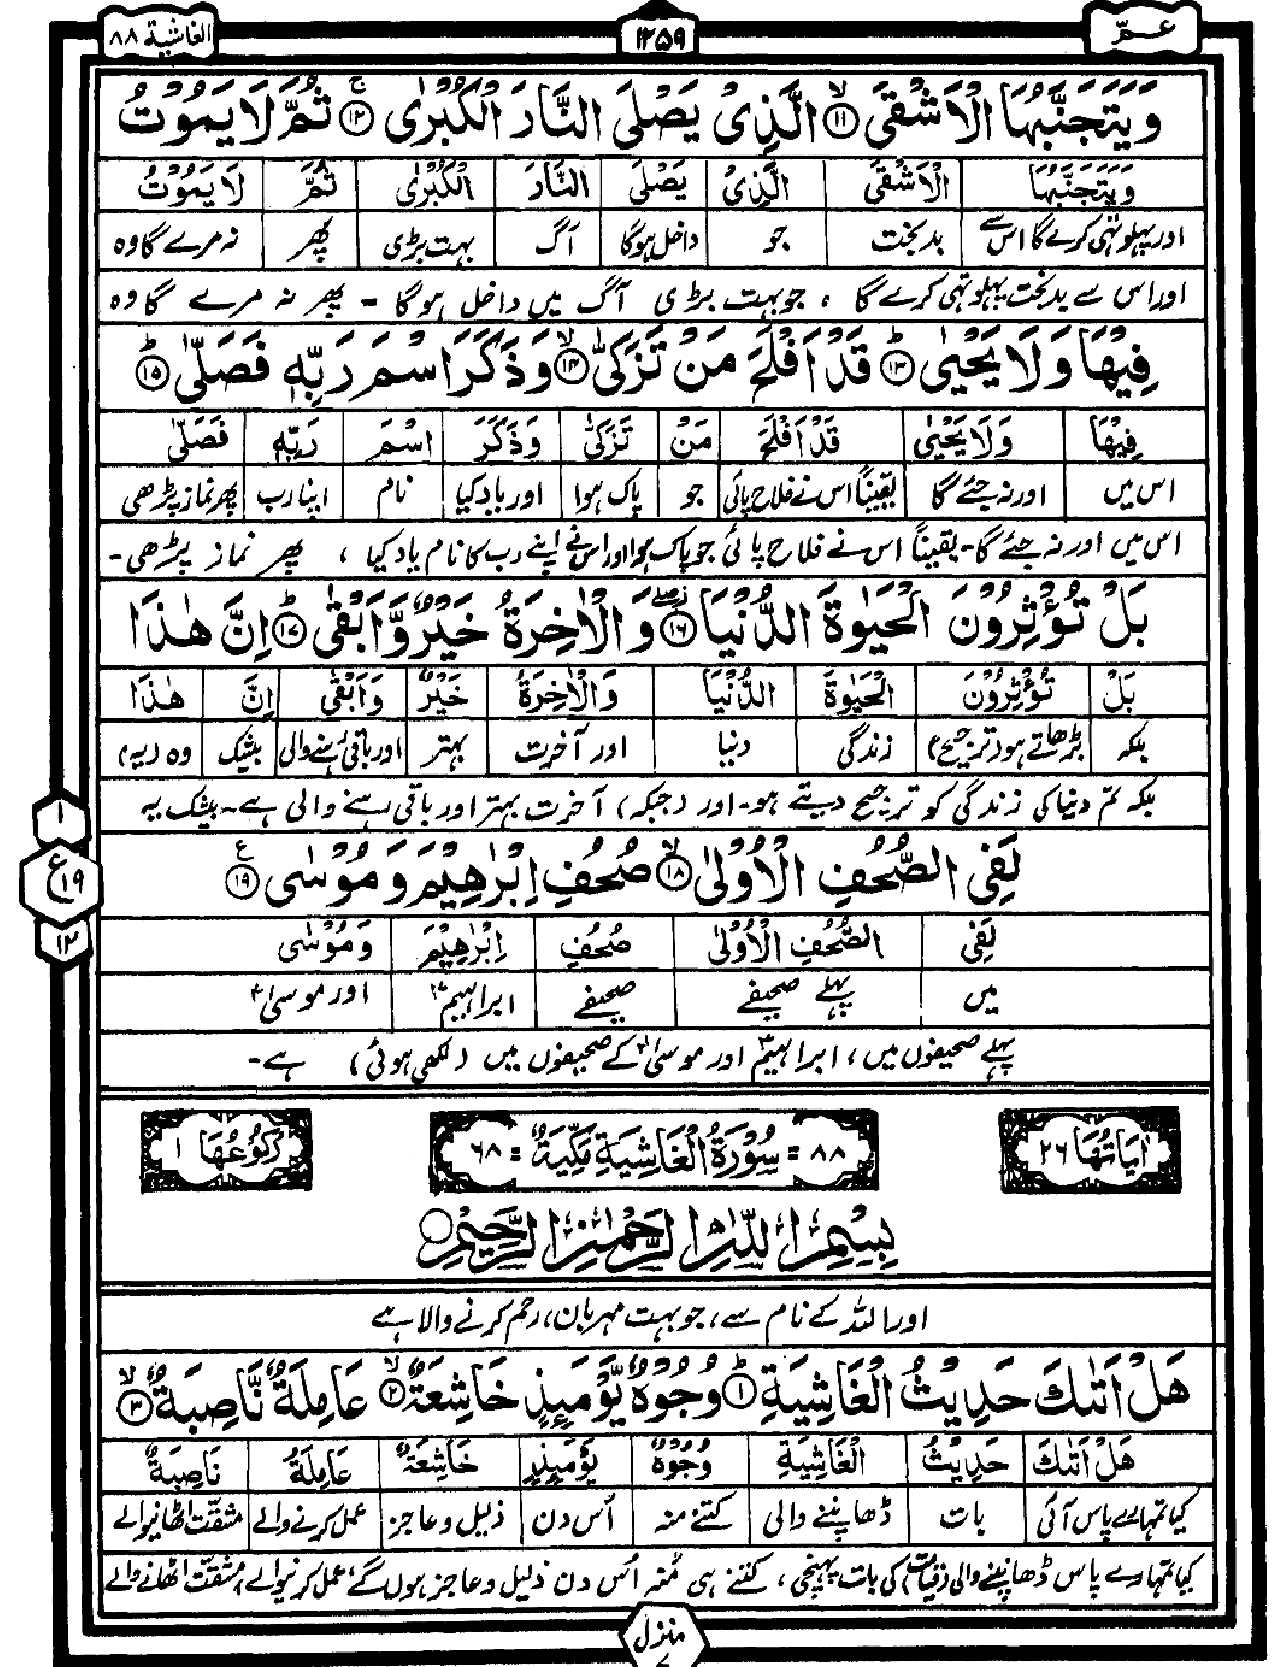 عـمّ
١٢٥٩
الغاشية ٨٨
وَيَتَجَنَّبُهَا الْاَشْقَى ۙ﴿۱۱﴾ الَّذِىْ يَصْلَى النَّارَ الْكُبْرٰى ۚ﴿۱۲﴾ ثُمَّ لَا يَمُوْتُ
وَيَتَجَنَّبُهَا الْاَشْقَى الَّذِىْ يَصْلَى النَّارَ الْكُبْرٰى ثُمَّ لَا يَمُوْتُ
اور پہلو تہی کرے گا اس سے بدبخت جو داخل ہوگا آگ بہت بڑی پھر نہ مرے گا وہ
اور اس سے بدبخت پہلو تہی کرے گا ، جو بہت بڑی آگ میں داخل ہوگا - پھر نہ مرے گا وہ
فِيْهَا وَلَا يَحْيٰى ؕ﴿۱۳﴾ قَدْ اَفْلَحَ مَنْ تَزَكّٰى ۙ﴿۱۴﴾ وَذَكَرَ اسْمَ رَبِّهٖ فَصَلّٰى ؕ﴿۱۵﴾
فِيْهَا وَلَا يَحْيٰى قَدْ اَفْلَحَ مَنْ تَزَكّٰى وَذَكَرَ اسْمَ رَبِّهٖ فَصَلّٰى
اس میں اور نہ جئے گا یقیناً اس نے فلاح پائی جو پاک ہوا اور یاد کیا نام اپنا رب پھر نماز پڑھی
اس میں اور نہ جئے گا- یقیناً اس نے فلاح پائی جو پاک ہوا اور اس نے اپنے رب کا نام یاد کیا ، پھر نماز پڑھی-
بَلْ تُؤْثِرُوْنَ الْحَيٰوةَ الدُّنْيَا ۖ﴿۱۶﴾ وَالْاٰخِرَةُ خَيْرٌ وَّاَبْقٰى ؕ﴿۱۷﴾ اِنَّ هٰذَا
بَلْ تُؤْثِرُوْنَ الْحَيٰوةَ الدُّنْيَا وَالْاٰخِرَةُ خَيْرٌ وَاَبْقٰى اِنَّ هٰذَا
بلکہ بڑھاتے ہو (ترجیح) زندگی دنیا اور آخرت بہتر اور باقی رہنے والی بیشک وہ (یہ)
بلکہ تم دنیا کی زندگی کو ترجیح دیتے ہو- اور (جبکہ) آخرت بہتر اور باقی رہنے والی ہے- بیشک یہ
لَفِى الصُّحُفِ الْاُوْلٰى ۙ﴿۱۸﴾ صُحُفِ اِبْرٰهِيْمَ وَمُوْسٰى ﴿۱۹﴾ ع
١
ع ١٩
١٢
لَفِى الصُّحُفِ الْاُوْلٰى صُحُفِ اِبْرٰهِيْمَ وَمُوْسٰى
میں پہلے صحیفے صحیفے ابراہیمؑ اور موسیٰؑ
پہلے صحیفوں میں، ابراہیمؑ اور موسیٰؑ کے صحیفوں میں (لکھی ہوئی) ہے-
اٰيَاتُهَا ٢٦
٨٨ = سُوْرَةُ الْغَاشِيَةِ مَكِّيَّةٌ = ٦٨
رُكُوْعُهَا ١
بِسْمِ اللّٰهِ الرَّحْمٰنِ الرَّحِيْمِ
اور اللہ کے نام سے، جو بہت مہربان، رحم کرنے والا ہے
هَلْ اَتٰىكَ حَدِيْثُ الْغَاشِيَةِ ؕ﴿۱﴾ وُجُوْهٌ يَّوْمَئِذٍ خَاشِعَةٌ ۙ﴿۲﴾ عَامِلَةٌ نَّاصِبَةٌ ۙ﴿۳﴾
هَلْ اَتٰىكَ حَدِيْثُ الْغَاشِيَةِ وُجُوْهٌ يَّوْمَئِذٍ خَاشِعَةٌ عَامِلَةٌ نَاصِبَةٌ
کیا تمہارے پاس آئی بات ڈھانپنے والی کتنے منہ اُس دن ذلیل و عاجز عمل کرنے والے مشقت اٹھانیوالے
کیا تمہارے پاس ڈھانپنے والی (قیامت) کی بات پہنچی، کتنے ہی مُنہ اُس دن ذلیل و عاجز ہوں گے، عمل کرنیوالے، مشقت اٹھانے والے
منزل ٧